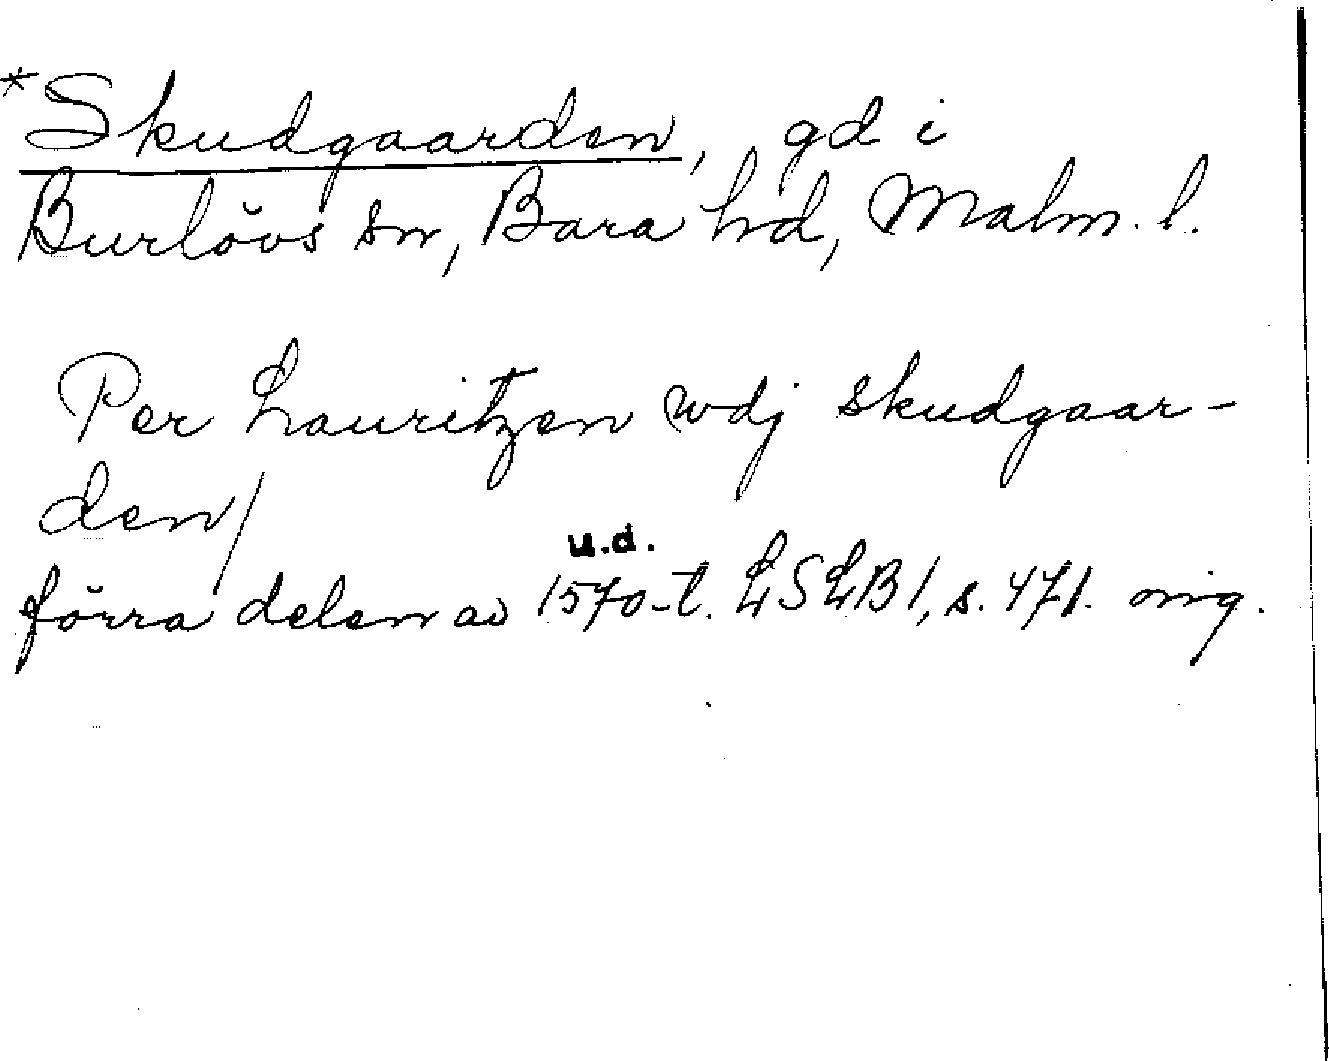 *Skudgaarden, gd i
Burlövs sn, Bara hd, Malm. l.
Per Lauritzen wdj skudgaar-
den/
u.d.
förra delen av 1570-t. LSLB1, s. 471. ing.